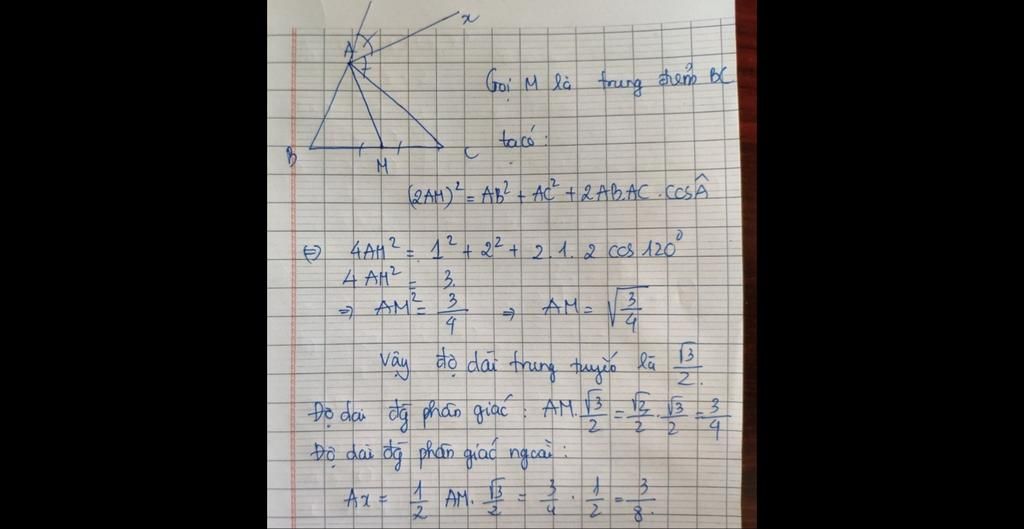 x
A
B
M
C
Gọi M là trung điểm BC
ta có:
(2AM)² = AB² + AC² + 2AB.AC.cosÂ
⇔ 4AM² = 1² + 2² + 2.1.2 cos 120⁰
4AM² = 3.
⇒ AM² = 3/4 ⇒ AM = √(3/4)
Vậy độ dài trung tuyến là √3/2.
Độ dài đg phân giác: AM.√3/2 = √3/2.√3/2 = 3/4
Độ dài đg phân giác ngoài:
Ax = 1/2 AM.√3/2 = 3/4 . 1/2 = 3/8.